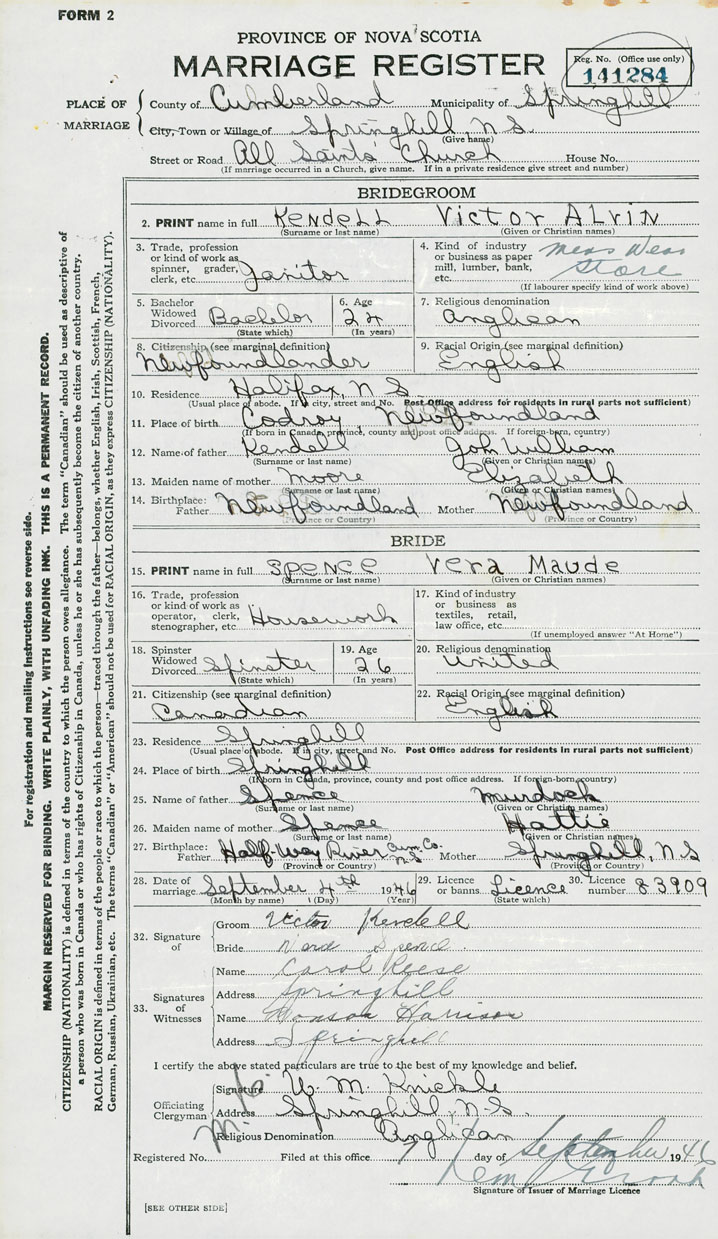 FORM 2
PROVINCE OF NOVA SCOTIA
MARRIAGE REGISTER
Reg. No. (Office use only)
141284
PLACE OF MARRIAGE
County of Cumberland Municipality of Springhill
City, Town or Village of Springhill, N.S.
(Give name)
Street or Road All Saints' Church House No.
(If marriage occurred in a Church, give name. If in a private residence give street and number)
BRIDEGROOM
2. PRINT name in full Kendell Victor Alvin
(Surname or last name) (Given or Christian names)
3. Trade, profession or kind of work as spinner, grader, clerk, etc. Janitor
4. Kind of industry or business as paper mill, lumber, bank, etc. Mens Wear Store
(If labourer specify kind of work above)
5. Bachelor Widowed Divorced Bachelor
(State which)
6. Age 24
(In years)
7. Religious denomination
Anglican
8. Citizenship (see marginal definition)
Newfoundlander
9. Racial Origin (see marginal definition)
English
10. Residence Halifax, N.S.
(Usual place of abode. If in city, street and No. Post Office address for residents in rural parts not sufficient)
11. Place of birth Codroy, Newfoundland
(If born in Canada, province, county and post office address. If foreign-born, country)
12. Name of father Kendell John William
(Surname or last name) (Given or Christian names)
13. Maiden name of mother Moore Elizabeth
(Surname or last name) (Given or Christian names)
14. Birthplace: Father Newfoundland Mother Newfoundland
(Province or Country) (Province or Country)
BRIDE
15. PRINT name in full Spence Vera Maude
(Surname or last name) (Given or Christian names)
16. Trade, profession or kind of work as operator, clerk, stenographer, etc. Housework
17. Kind of industry or business as textiles, retail, law office, etc.
(If unemployed answer "At Home")
18. Spinster Widowed Divorced Spinster
(State which)
19. Age 26
(In years)
20. Religious denomination
United
21. Citizenship (see marginal definition)
Canadian
22. Racial Origin (see marginal definition)
English
23. Residence Springhill
(Usual place of abode. If in city, street and No. Post Office address for residents in rural parts not sufficient)
24. Place of birth Springhill
(If born in Canada, province, county and post office address. If foreign-born, country)
25. Name of father Spence Murdock
(Surname or last name) (Given or Christian names)
26. Maiden name of mother Spence Hattie
(Surname or last name) (Given or Christian names)
27. Birthplace: Father Half-Way River Cum. Co. N.S. Mother Springhill, N.S
(Province or Country) (Province or Country)
28. Date of marriage September 4th 1946
(Month by name) (Day) (Year)
29. Licence or banns Licence
(State which)
30. Licence number 83909
32. Signature of
Groom Victor Kendell
Bride Vera Spence
33. Signatures of Witnesses
Name Carol Reese
Address Springhill
Name Harrison
Address Springhill
I certify the above stated particulars are true to the best of my knowledge and belief.
Officiating Clergyman
Signature W. M. Knickle
Address Springhill, N.S.
Religious Denomination Anglican
Registered No. Filed at this office 7 day of September 1946
Signature of Issuer of Marriage Licence
[SEE OTHER SIDE]
For registration and mailing instructions see reverse side.
MARGIN RESERVED FOR BINDING. WRITE PLAINLY, WITH UNFADING INK. THIS IS A PERMANENT RECORD.
CITIZENSHIP (NATIONALITY) is defined in terms of the country to which the person owes allegiance. The term "Canadian" should be used as descriptive of
a person who was born in Canada or who has rights of Citizenship in Canada, unless he or she has subsequently become the citizen of another country.
RACIAL ORIGIN is defined in terms of the people or race to which the person—traced through the father—belongs, whether English, Irish, Scottish, French,
German, Russian, Ukrainian, etc. The terms "Canadian" or "American" should not be used for RACIAL ORIGIN, as they express CITIZENSHIP (NATIONALITY).